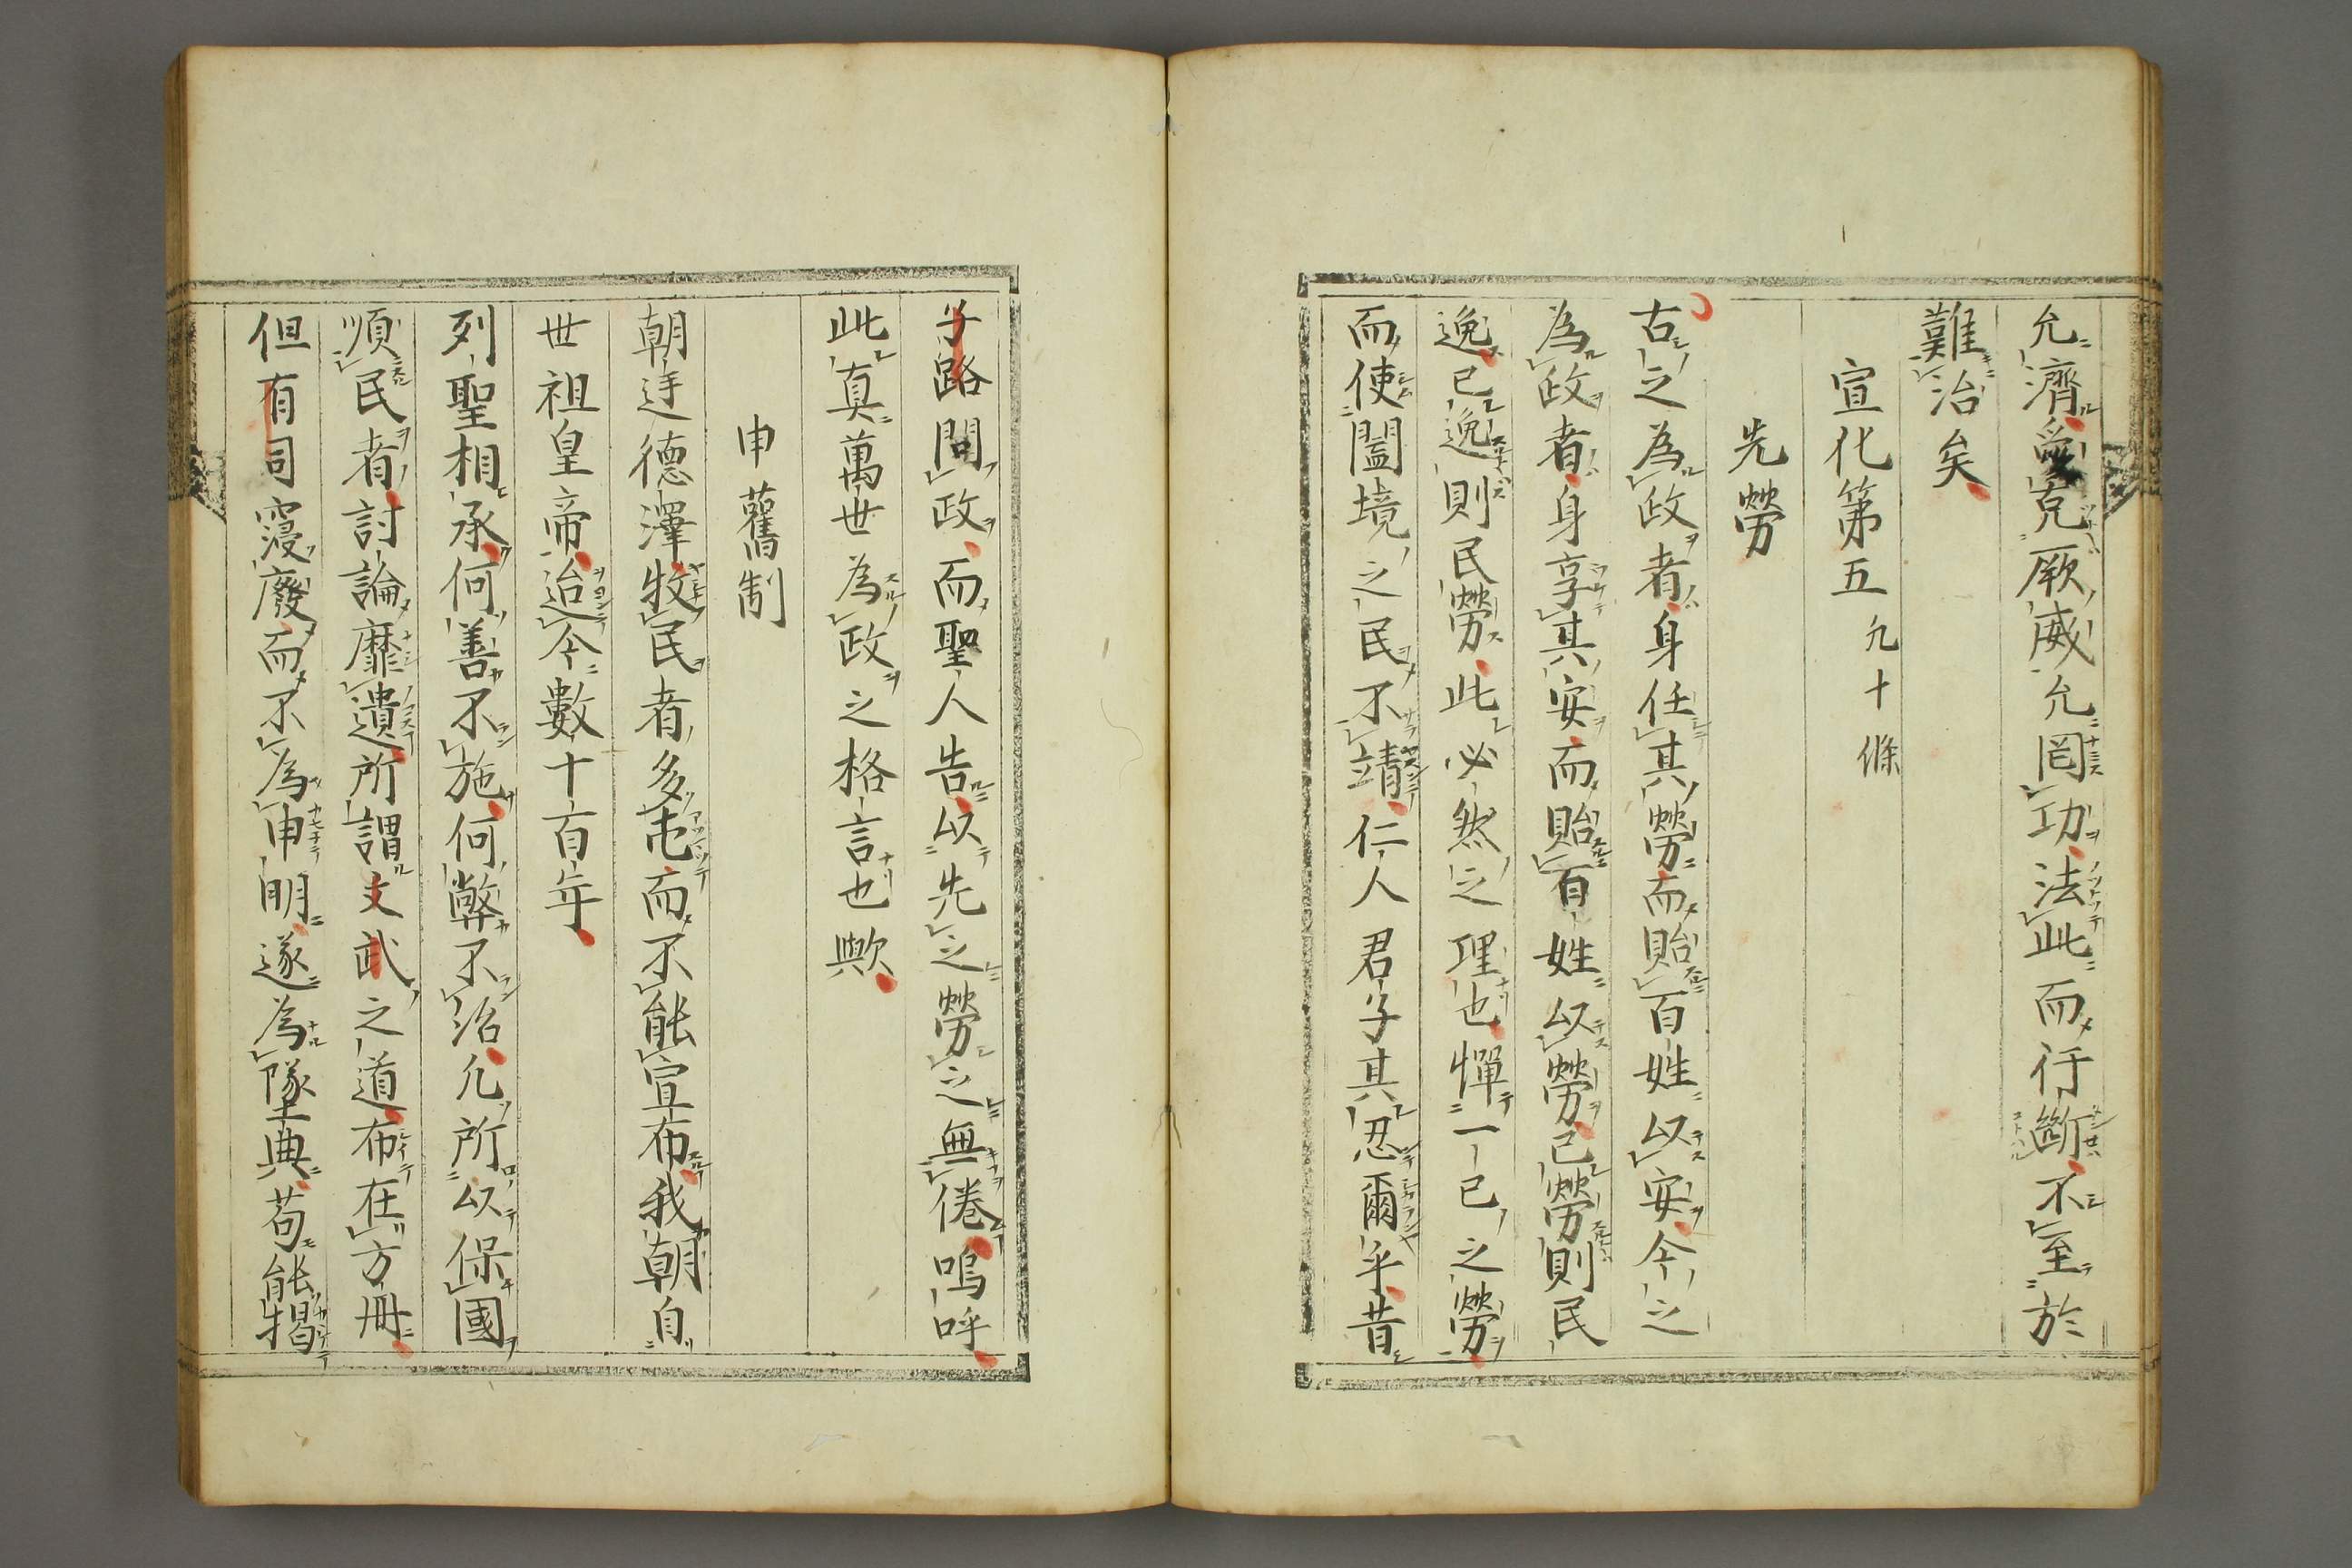 允濟愛克厥威允罔功法此而行斷不至於
難治矣
宣化第五 凡十條
先勞
古之為政者身任其勞而貽百姓以安今之
為政者身享其安而貽百姓以勞己勞則民
逸己逸則民勞此必然之理也憚一己之勞
而使闔境之民不靖仁人君子其忍爾乎昔
子路問政而聖人告以先之勞之無倦嗚呼
此真萬世為政之格言也歟
申舊制
朝廷德澤牧民者多屯而不能宣布我朝自
世祖皇帝迨今數十百年
列聖相承何善不施何弊不治凡所以保國
順民者討論靡遺所謂文武之道布在方冊
但有司寖廢而不為申明遂為墜典苟能揭